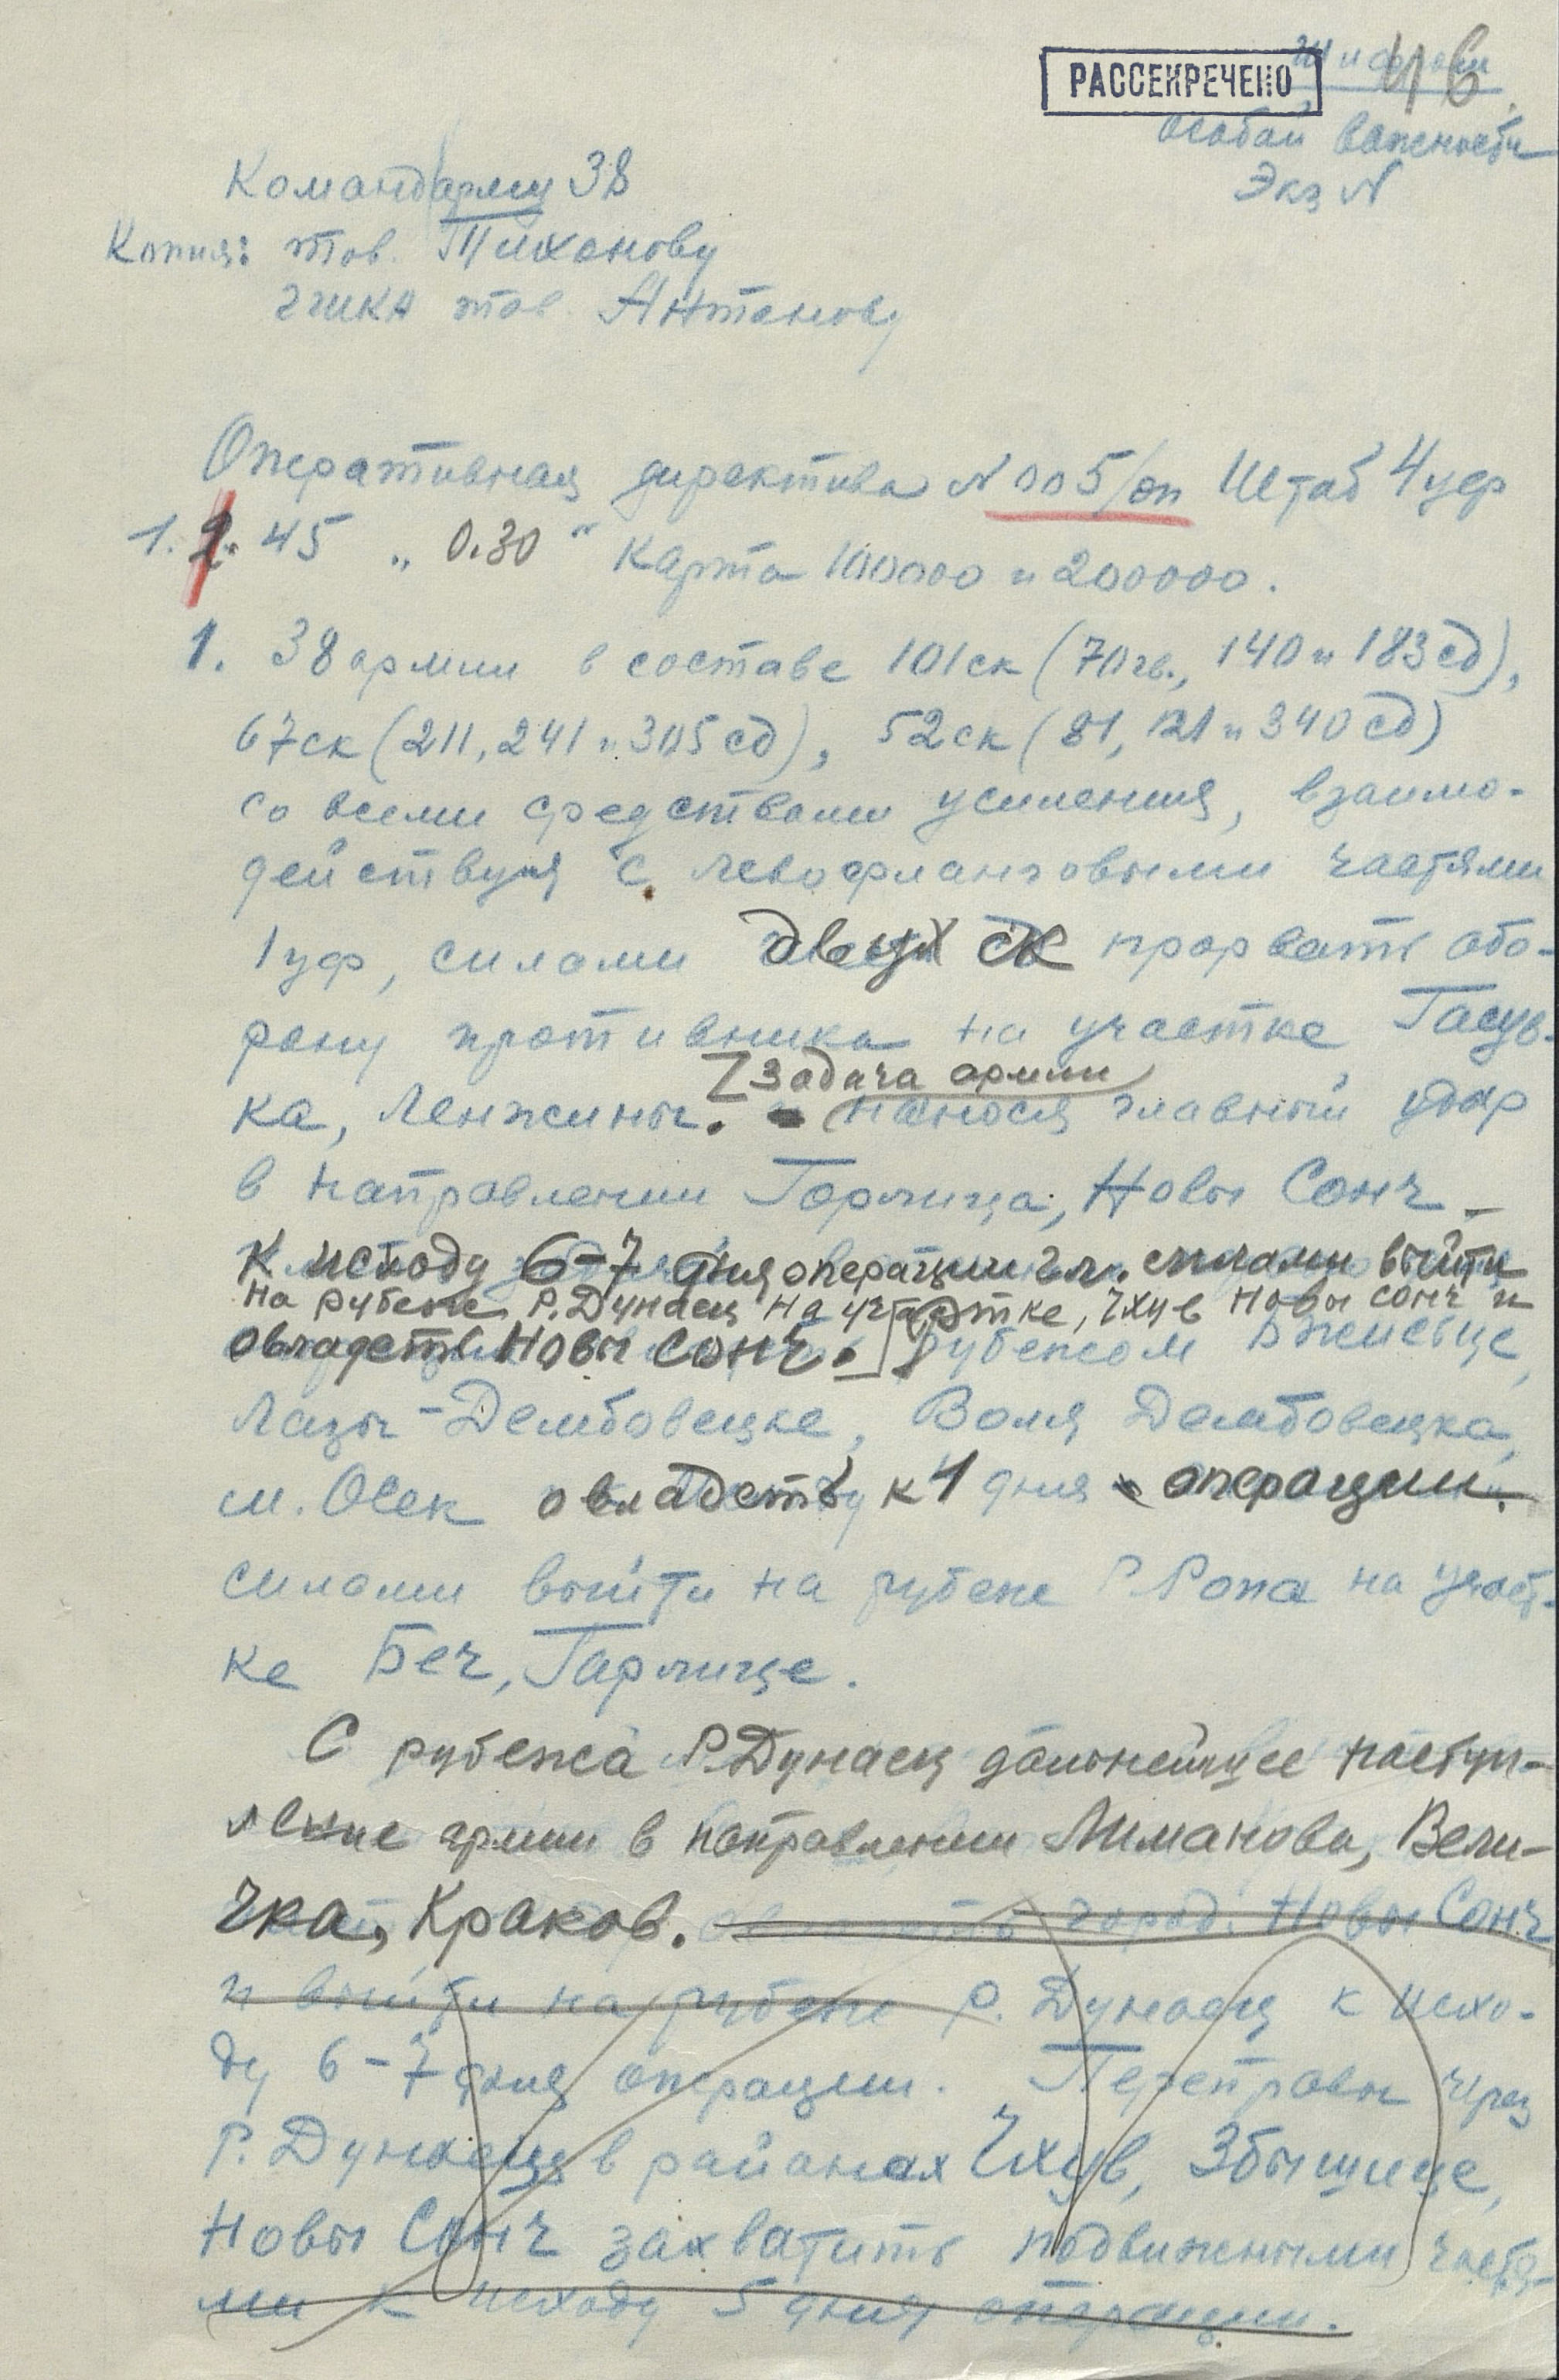 Шифром
РАССЕКРЕЧЕНО
особой важности
Экз N
Командарму 38
Копия: тов. Тихонову
тов. Антонову
Оперативная директива N 005/оп Штаб 4 уф
1.1.45 „0.30“ Карта 100000 и 200000.
1. 38 армии в составе 101 ск (70 гв., 140 и 183 сд),
67 ск (211, 241 и 305 сд), 52 ск (81, 121 и 340 сд)
со всеми средствами усиления, взаимо-
действуя с левофланговыми частями
1 уф, силами двух ск прорвать обо-
рону противника на участке Гасув-
Задача армии
ка, Ленжины. нанося главный удар
в направлении Горлица, Новы Сонч
К исходу 6-7 дня операции гл. силами выйти
на рубеже р. Дунаец на участке, Чхув Новы Сонч и
овладеть Новы Сонч. рубежом Бжисьце,
Лазы-Дембовецке, Воля Дембовецка,
м. Осек овладеть к 1 дня операции.
силами выйти на рубеже р. Ропа на участ-
ке Беч, Гарлице.
С рубежа р. Дунаец дальнейшее наступ-
ление армии в направлении Лиманова, Вели-
чка, Краков. город Новы Сонч
и выйти на рубеже р. Дунаец к исхо-
ду 6-7 дня операции. Переправы через
р. Дунаец в районах Чхув, Збышице,
Новы Сонч захватить подвижными частя-
ми к исходу 5 дня операции.